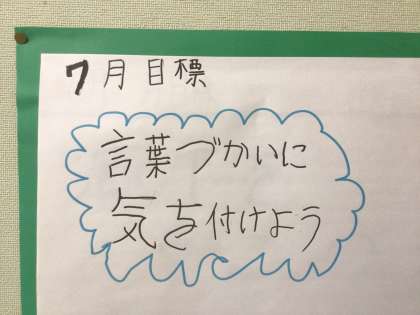 7月目標
言葉づかいに
気を付けよう